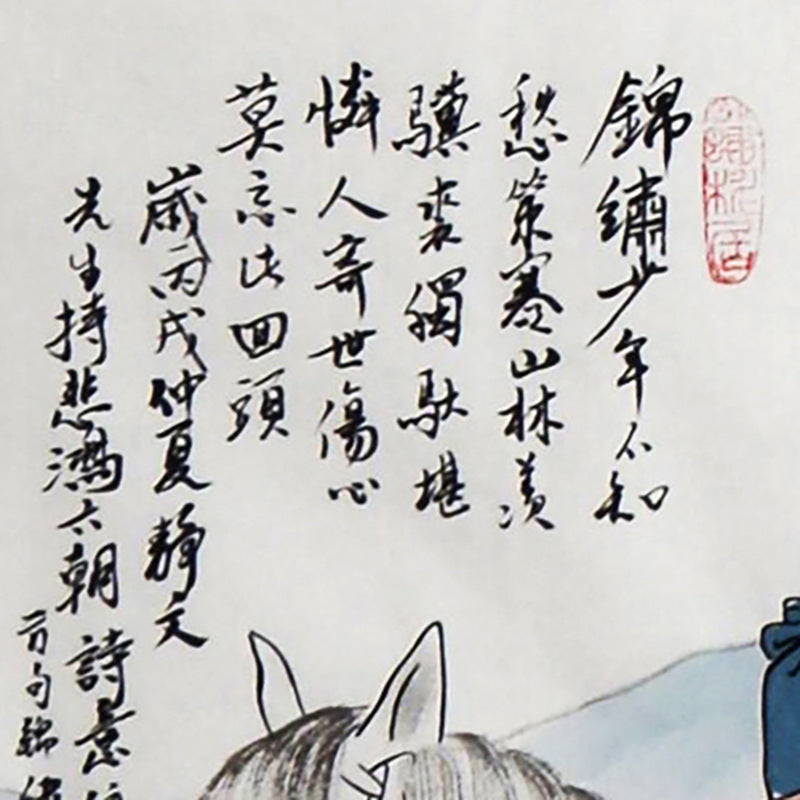 錦繡少年不知
愁策蹇山林羨
驥裘獨馱堪
憐人寄世傷心
莫忘此回頭
歲丙戌仲夏靜文
先生持悲鴻六朝詩意
首句錦繡